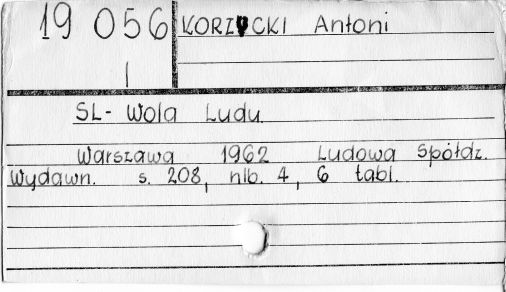 19 056 KORZYCKI Antoni
I
SL- Wola Ludu
Warszawa 1962 Ludowa Spółdz.
Wydawn. s. 208, nlb. 4, 6 tabl.